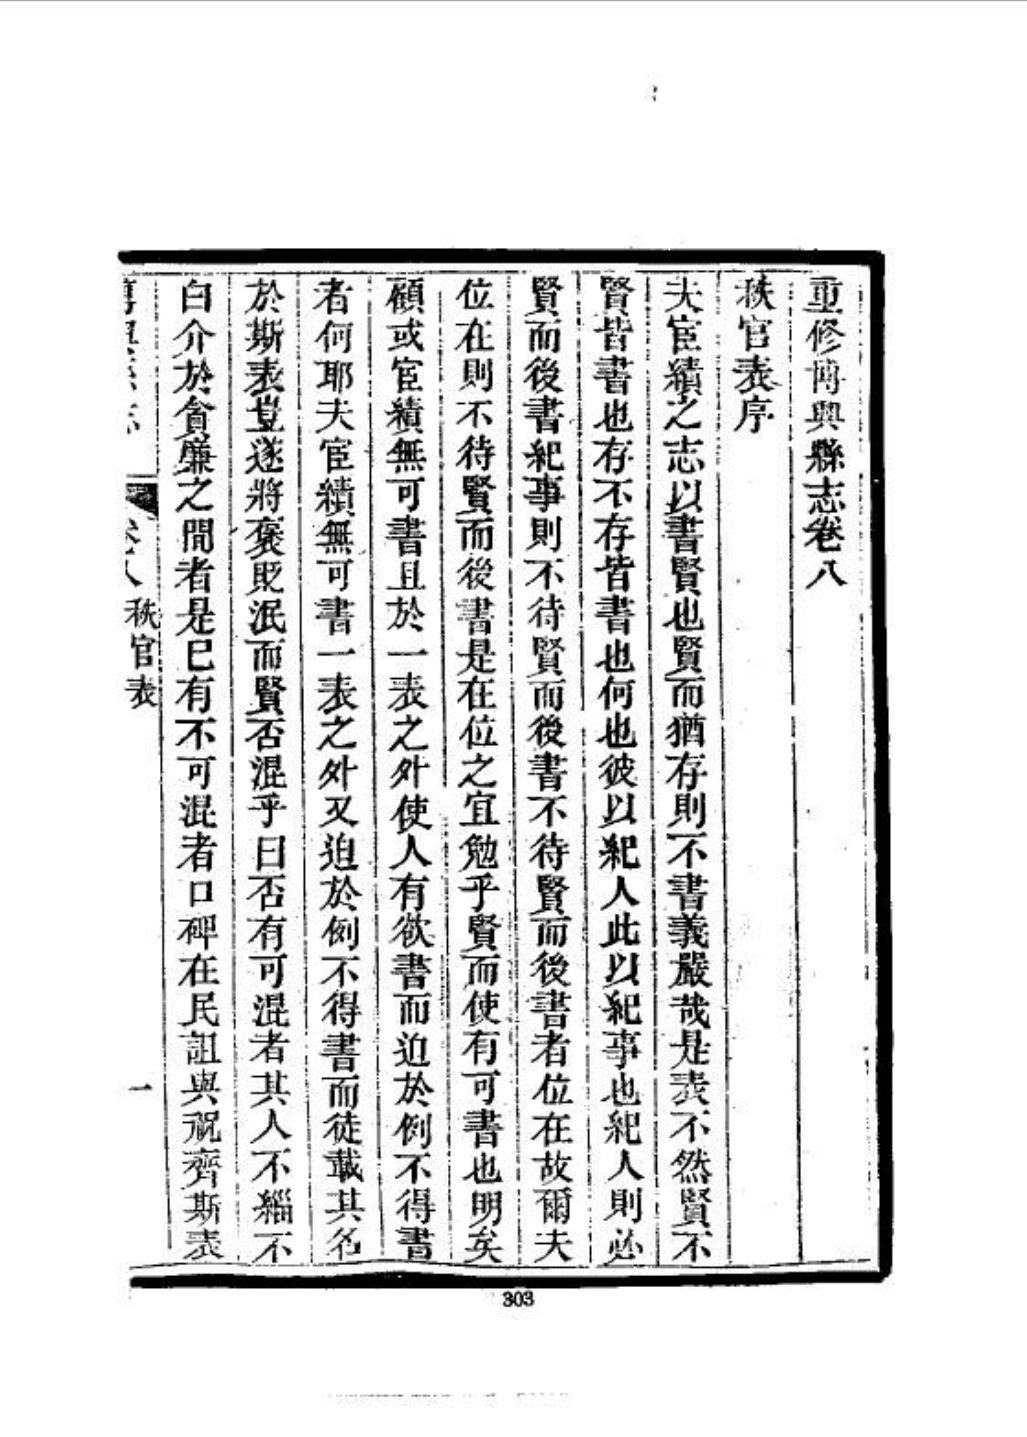 重修博興縣志卷八
秩官表序
夫宦績之志以書賢也賢而猶存則不書義嚴哉是表不然賢不
賢皆書也存不存皆書也何也彼以紀人此以紀事也紀人則必
賢而後書紀事則不待賢而後書不待賢而後書者位在故爾夫
位在則不待賢而後書是在位之宜勉乎賢而使有可書也明矣
顧或宦績無可書且於一表之外使人有欲書而迫於例不得書
者何耶夫宦績無可書一表之外又迫於例不得書而徒載其名
於斯表豈遂將褒貶泯而賢否混乎曰否有可混者其人不緇不
白介於貪廉之間者是已有不可混者口碑在民詛與祝齊斯表
博興縣志
卷八
秩官表
一
303